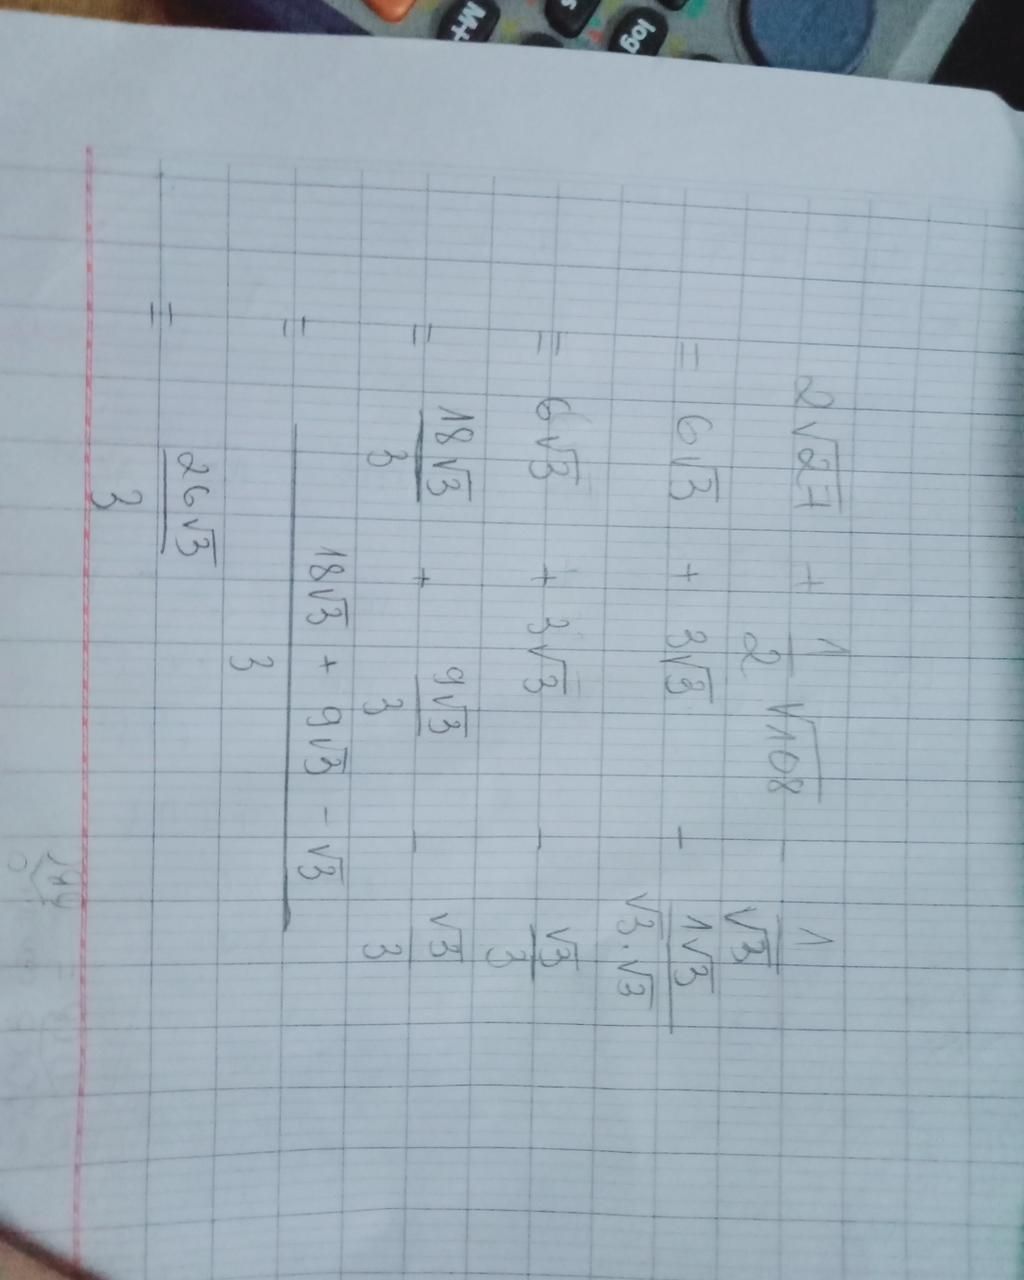 2√27 + 1/2 √108 - 1/√3
= 6√3 + 3√3 - 1√3/√3·√3
= 6√3 + 3√3 - √3/3
= 18√3/3 + 9√3/3 - √3/3
= 18√3 + 9√3 - √3/3
= 26√3/3
M+
log